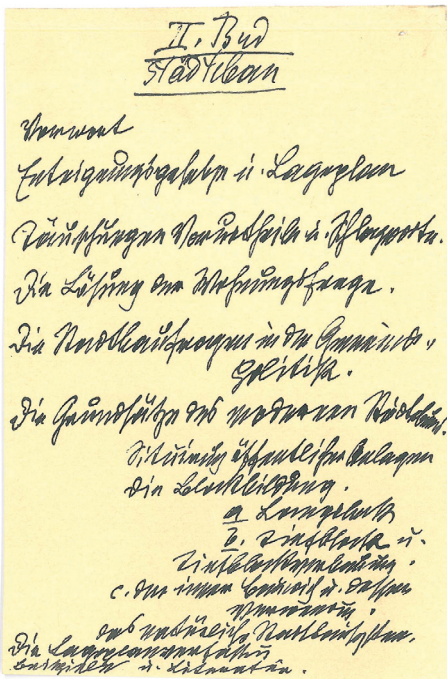 II. Bud
Städtebau
Vorwort
Enteignungsgesetze u. Lageplan
Täuschungen Vorurtheile u. Schlagworte.
Die Lösung der Wohnungsfrage.
Die Stadtbaufragen in der Gemeinde-
Politik.
Die Grundsätze des modernen Städtebaus.
Situirung öffentlicher Anlagen
Die Blockbildung.
a Langblock
b. Tiefblock u.
Tiefblockverbauung.
c. der innere Bereich u. dessen
das natürliche
Die Lageplanverfassung
Beispiele u. Literatur.